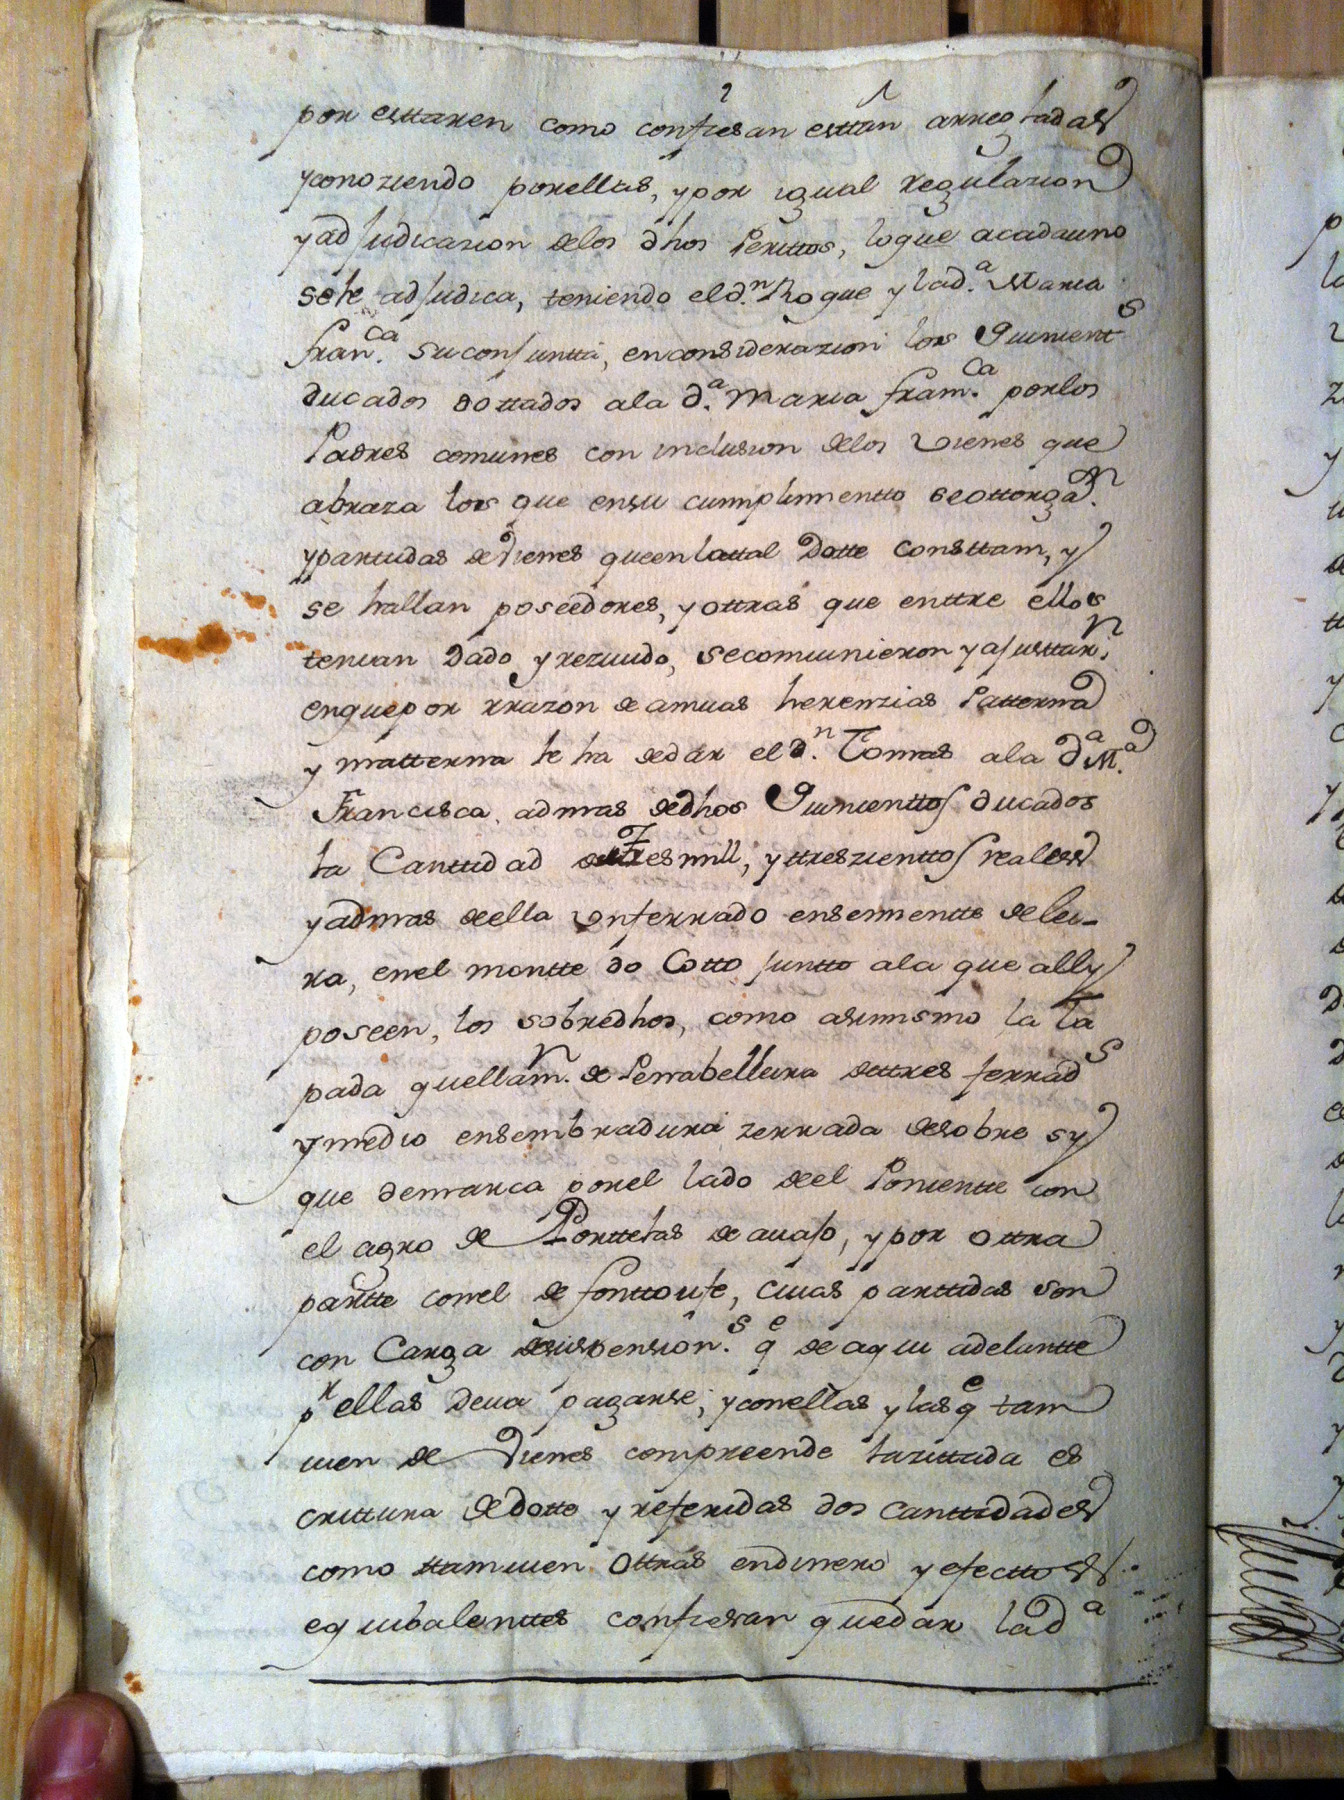 por esttaren como confiesan esttan arregladas
y conoziendo por ellas, y por igual regulazion
y adjudicazion de los dhos Perittos, lo que a cada uno
se le adjudica, teniendo el d.n Roque y la d.a Maria
Fran.ca su conjuntta, en considerazion los Quinient.s
ducados dottados a la d.a Maria Fran.ca por los
Padres comunes con inclusion de los vienes que
abraza los que en su cumplimentto se ottorga.n
y parttidas de vienes que en la ttal Dotte consttam, y
se hallan poseedores, y ottras que enttre ellos
tenian dado y rezivido, se comvinieron y ajusttar.n
en que por rrazon de amvas herenzias Patterna
y matterna le ha de dar el d.n Tomas a la d.a M.a
Francisca, admas de dhos Quinienttos ducados
la Canttidad de tres mill, y ttreszienttos reales
y admas de ella un ferrado en semientte de lei-
ra, en el montte do Cotto juntto a la que ally
poseen, los sobredhos, como asimismo la la
pada que llam.n de Penabelleira de ttres ferrad.s
y medio en sembradura zerrada de sobre sy
que demarca por el lado de el Ponientte con
el agro de Porttelas de avajo, y por ottra
partte con el de Fonttoufe, cuias parttidas son
con Carga de su pension.s q.e de aqui adelantte
p.r ellas deva pagarse, y con ellas y las q.e tam
vien de vienes compreende la zittada es
crittura de dotte y referidas dos canttidades
como ttamvien ottras en dinero y efecttos
equibalenttes confiesan quedar la d.a